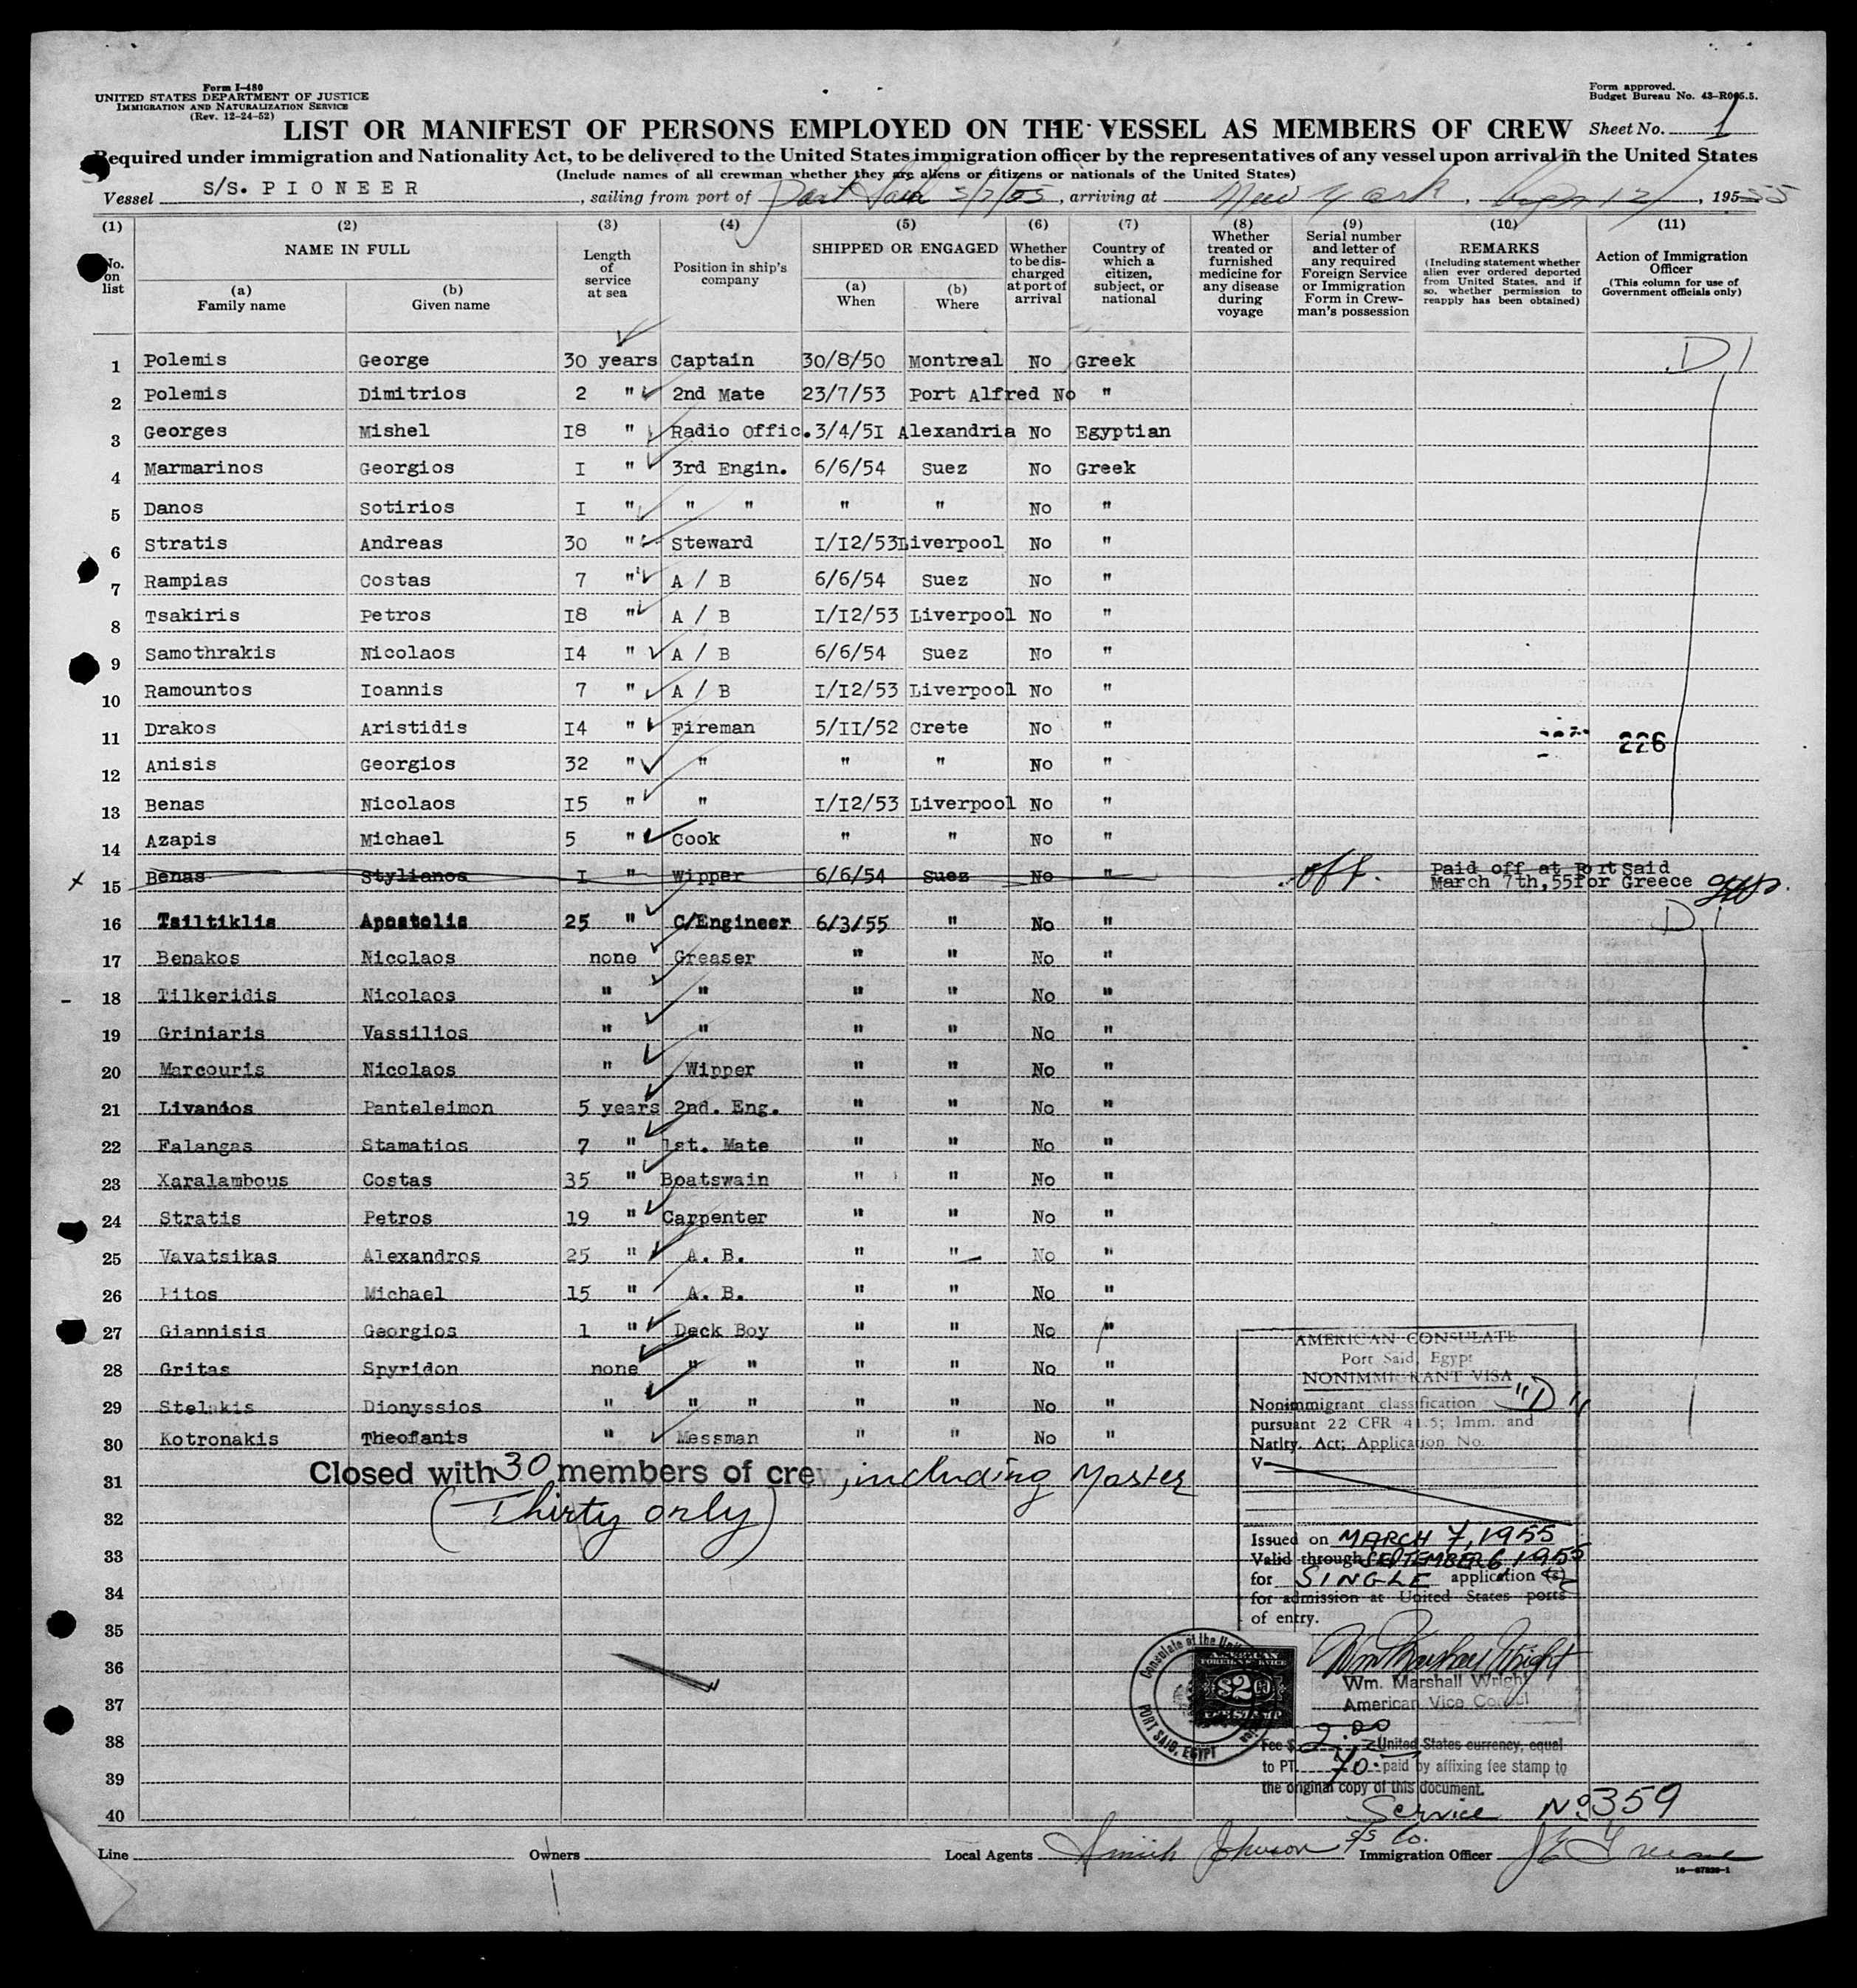 Form I-480
UNITED STATES DEPARTMENT OF JUSTICE
IMMIGRATION AND NATURALIZATION SERVICE
(Rev. 12-24-52)
Form approved.
Budget Bureau No. 43-R065.5.
LIST OR MANIFEST OF PERSONS EMPLOYED ON THE VESSEL AS MEMBERS OF CREW Sheet No. 1
Required under immigration and Nationality Act, to be delivered to the United States immigration officer by the representatives of any vessel upon arrival in the United States
(Include names of all crewman whether they are aliens or citizens or nationals of the United States)
Vessel S/S. PIONEER , sailing from port of Port Said 3/7/55 , arriving at New York , 12 , 195 55
(1) (2) (3) (4) (5) (6) (7) (8) (9) (10) (11)
No. on list
NAME IN FULL
(a) Family name
(b) Given name
Length of service at sea
Position in ship's company
SHIPPED OR ENGAGED
(a) When
(b) Where
Whether to be discharged at port of arrival
Country of which a citizen, subject, or national
Whether treated or furnished medicine for any disease during voyage
Serial number and letter of any required Foreign Service or Immigration Form in Crewman's possession
REMARKS
(Including statement whether alien ever ordered deported from United States, and if so, whether permission to reapply has been obtained)
Action of Immigration Officer
(This column for use of Government officials only)
1 Polemis George 30 years Captain 30/8/50 Montreal No Greek D 1
2 Polemis Dimitrios 2 " 2nd Mate 23/7/53 Port Alfred No "
3 Georges Mishel I8 " Radio Offic. 3/4/5I Alexandria No Egyptian
4 Marmarinos Georgios I " 3rd Engin. 6/6/54 Suez No Greek
5 Danos Sotirios I " " " " " No "
6 Stratis Andreas 30 " Steward I/I2/53 Liverpool No "
7 Rampias Costas 7 " A / B 6/6/54 Suez No "
8 Tsakiris Petros I8 " A / B I/I2/53 Liverpool No "
9 Samothrakis Nicolaos I4 " A / B 6/6/54 Suez No "
10 Ramountos Ioannis 7 " A / B I/I2/53 Liverpool No "
11 Drakos Aristidis I4 " Fireman 5/II/52 Crete No " 226
12 Anisis Georgios 32 " " " " No "
13 Benas Nicolaos I5 " " I/I2/53 Liverpool No "
14 Azapis Michael 5 " Cook " " No "
x 15 Benas Stylianos I " Wipper 6/6/54 Suez No " off. Paid off at Port Said
March 7th,55 for Greece
16 Tsiltiklis Apostolis 25 " C/Engineer 6/3/55 " No " D 1
17 Benakos Nicolaos none Greaser " " No "
- 18 Tilkeridis Nicolaos " " " " No "
19 Griniaris Vassilios " " " " No "
20 Marcouris Nicolaos " Wipper " " No "
21 Livanios Panteleimon 5 years 2nd. Eng. " " No "
22 Falangas Stamatios 7 " 1st. Mate " " No "
23 Xaralambous Costas 35 " Boatswain " " No "
24 Stratis Petros 19 " Carpenter " " No "
25 Vavatsikas Alexandros 25 " A. B. " " No "
26 Michael 15 " A. B. " " No "
27 Giannisis Georgios 1 " Deck Boy " " No "
28 Gritas Spyridon none " " " " No "
29 Stelakis Dionyssios " " " " " No "
30 Kotronakis Theofanis " Messman " " No "
31 Closed with 30 members of crew, including Master
32 (Thirty only)
33
34
35
36
37
38
39
40
AMERICAN CONSULATE
Port Said, Egypt
NONIMMIGRANT VISA
Nonimmigrant classification "D"
pursuant 22 CFR 41.5; Imm. and
Natlty. Act; Application No.
V
Issued on MARCH 7, 1955
Valid through SEPTEMBER 6 1955
for SINGLE application (s)
for admission at United States ports
of entry.
Wm. Marshall Wright
Wm. Marshall Wright
American Vice Consul
Consulate of the
PORT SAID, EGYPT
AMERICAN
FOREIGN SERVICE
$2.00
FEE STAMP
Fee $ 2.00 United States currency, equal
to PT. 70 paid by affixing fee stamp to
the original copy of this document.
Service No. 359
Line Owners Local Agents Smith Johnson S/S Co. Immigration Officer
16-67839-1